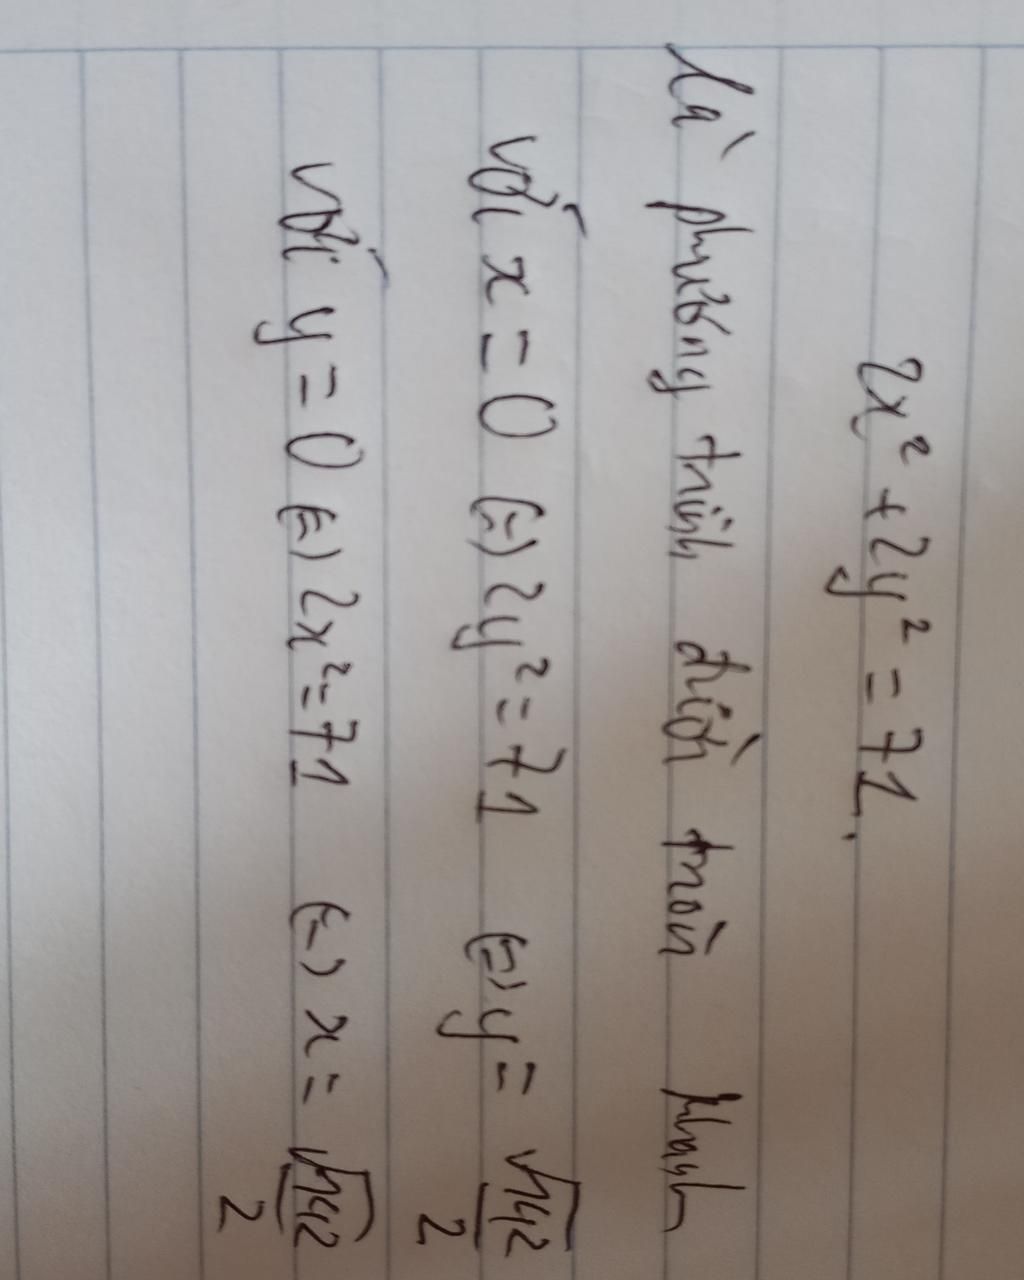 2x² + 2y² = 71.
là phương trình đường tròn
với x = 0 (=) 2y² = 71 (=) y = √142/2
với y = 0 (=) 2x² = 71 (=) x = √142/2